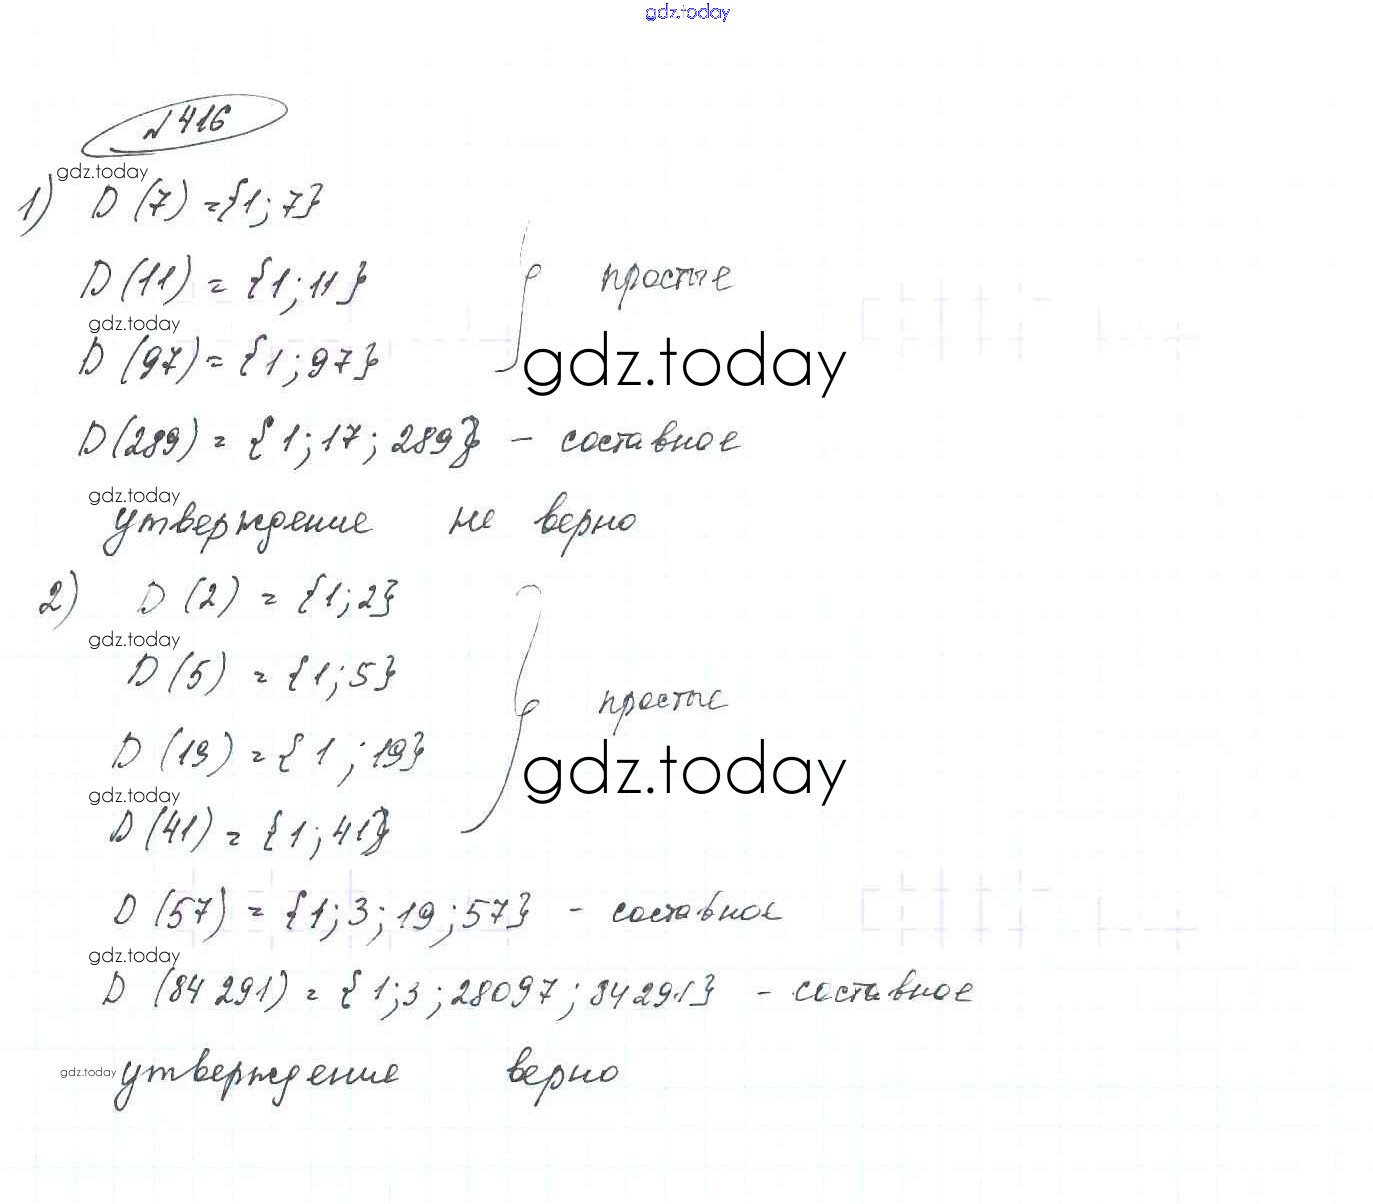 gdz.today
№416
gdz.today
1) D (7) = {1; 7}
D (11) = {1; 11}
простые
gdz.today
D (97) = {1; 97}
gdz.today
D (289) = {1; 17; 289} - составное
gdz.today
утверждение не верно
2) D (2) = {1; 2}
gdz.today
D (5) = {1; 5}
простые
D (19) = {1; 19}
gdz.today
gdz.today
D (41) = {1; 41}
D (57) = {1; 3; 19; 57} - составное
gdz.today
D (84 291) = {1; 3; 28097; 84291} - составное
gdz.today
утверждение верно